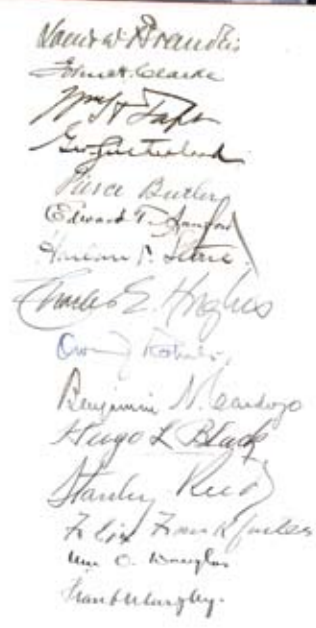 Louis D. Brandeis
John H. Clarke
Wm H Taft
Geo Sutherland
Pierce Butler
Edward T. Sanford
Harlan F. Stone
Charles E. Hughes
Owen J Roberts
Benjamin N. Cardozo
Hugo L Black
Stanley Reed
Felix Frankfurter
Wm O. Douglas
Frank Murphy.